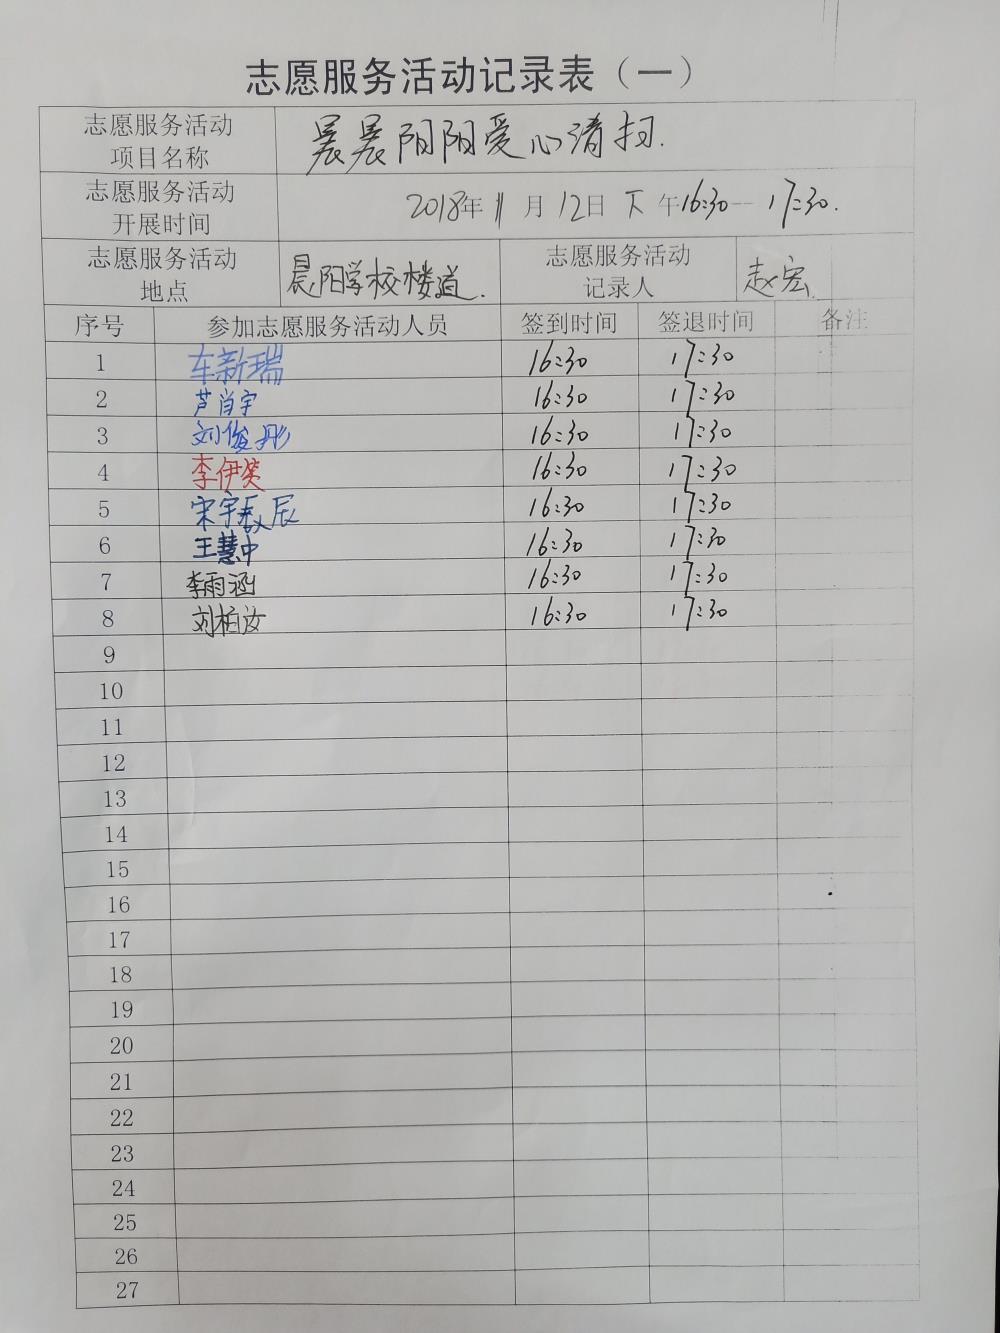 志愿服务活动记录表（一）
志愿服务活动
项目名称
晨晨阳阳爱心清扫.
志愿服务活动
开展时间
2018年11月12日下午16:30—17:30.
志愿服务活动
地点
晨阳学校楼道.
志愿服务活动
记录人
赵宏.
序号 参加志愿服务活动人员 签到时间 签退时间 备注
1 车新瑞 16:30 17:30
2 芦肖宇 16:30 17:30
3 刘俊彤 16:30 17:30
4 李伊笑 16:30 17:30
5 宋宇辰 16:30 17:30
6 王慧中 16:30 17:30
7 李雨涵 16:30 17:30
8 刘柏汝 16:30 17:30
9
10
11
12
13
14
15
16
17
18
19
20
21
22
23
24
25
26
27